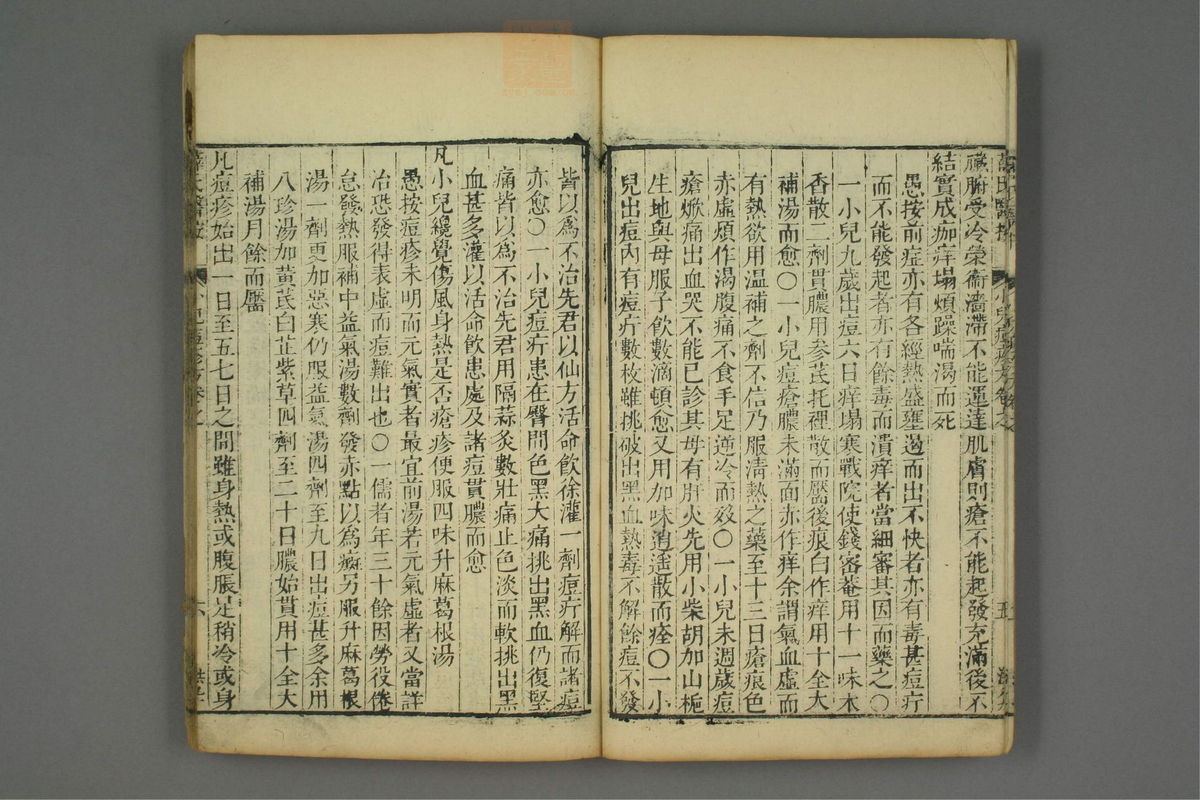 臟腑受冷榮衞濇滯不能運達肌膚則瘡不能起發充滿後不
結實成痂痒塌煩躁喘渴而死
愚按前症亦有各經熱盛壅遏而出不快者亦有毒甚痘疔
而不能發起者亦有餘毒而潰痒者當細審其因而藥之〇
一小兒九歲出痘六日痒塌寒戰院使錢密菴用十一味木
香散二劑貫膿用參芪托裡散而靨後痕白作痒用十全大
補湯而愈〇一小兒痘瘡膿未滿面赤作痒余謂氣血虛而
有熱欲用溫補之劑不信乃服淸熱之藥至十三日瘡痕色
赤虛煩作渴腹痛不食手足逆冷而歿〇一小兒未週歲痘
瘡焮痛出血哭不能已診其母有肝火先用小柴胡加山梔
生地與母服子飮數滴頓愈又用加味逍遙散而痊〇一小
兒出痘內有痘疔數枚雖挑破出黑血熱毒不解餘痘不發
皆以爲不治先君以仙方活命飮徐灌一劑痘疔解而諸痘
亦愈〇一小兒痘疔患在臀間色黑大痛挑出黑血仍復堅
痛皆以爲不治先君用隔蒜灸數壯痛止色淡而軟挑出黑
血甚多灌以活命飮患處及諸痘貫膿而愈
凡小兒纔覺傷風身熱是否瘡疹便服四味升麻葛根湯
愚按痘疹未明而元氣實者最宜前湯若元氣虛者又當詳
冶恐發得表虛而痘難出也〇一儒者年三十餘因勞役倦
怠發熱服補中益氣湯數劑發赤點以爲癍另服升麻葛根
湯一劑更加惡寒仍服益氣湯四劑至九日出痘甚多余用
八珍湯加黃芪白芷紫草四劑至二十日膿始貫用十全大
補湯月餘而靨
凡痘疹始出一日至五七日之間雖身熱或腹脹足稍冷或身
薛氏醫按
六